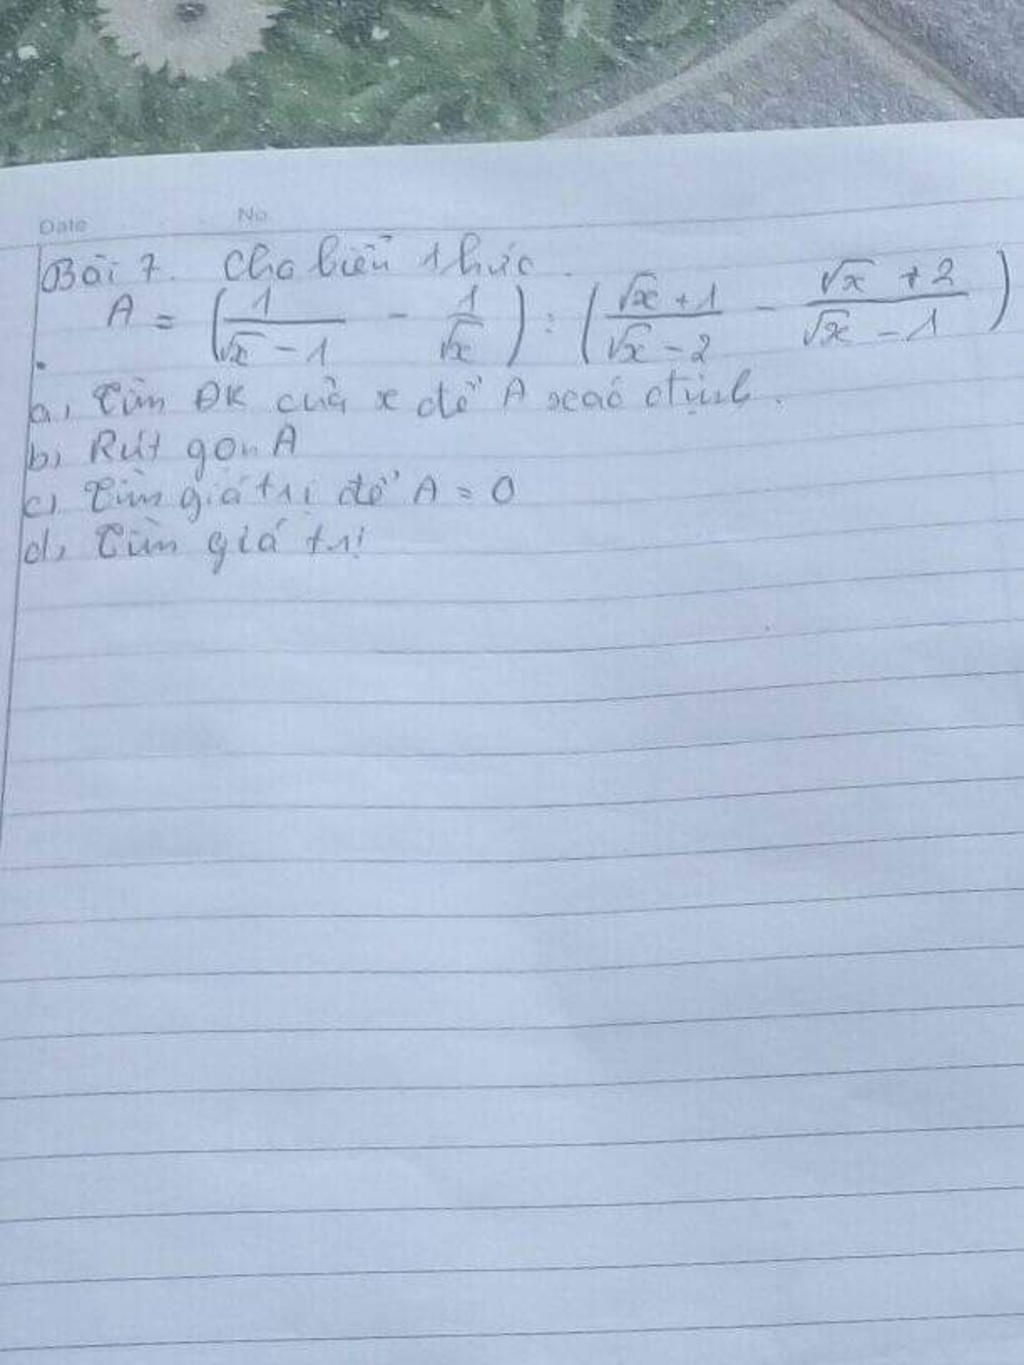 Date No.
Bài 7. Cho biểu thức.
A = (1/(√x - 1) - 1/√x) : ((√x + 1)/(√x - 2) - (√x + 2)/(√x - 1))
a, Tìm ĐK của x để A xác định.
b, Rút gọn A
c, Tìm giá trị để A = 0
d, Tìm giá trị